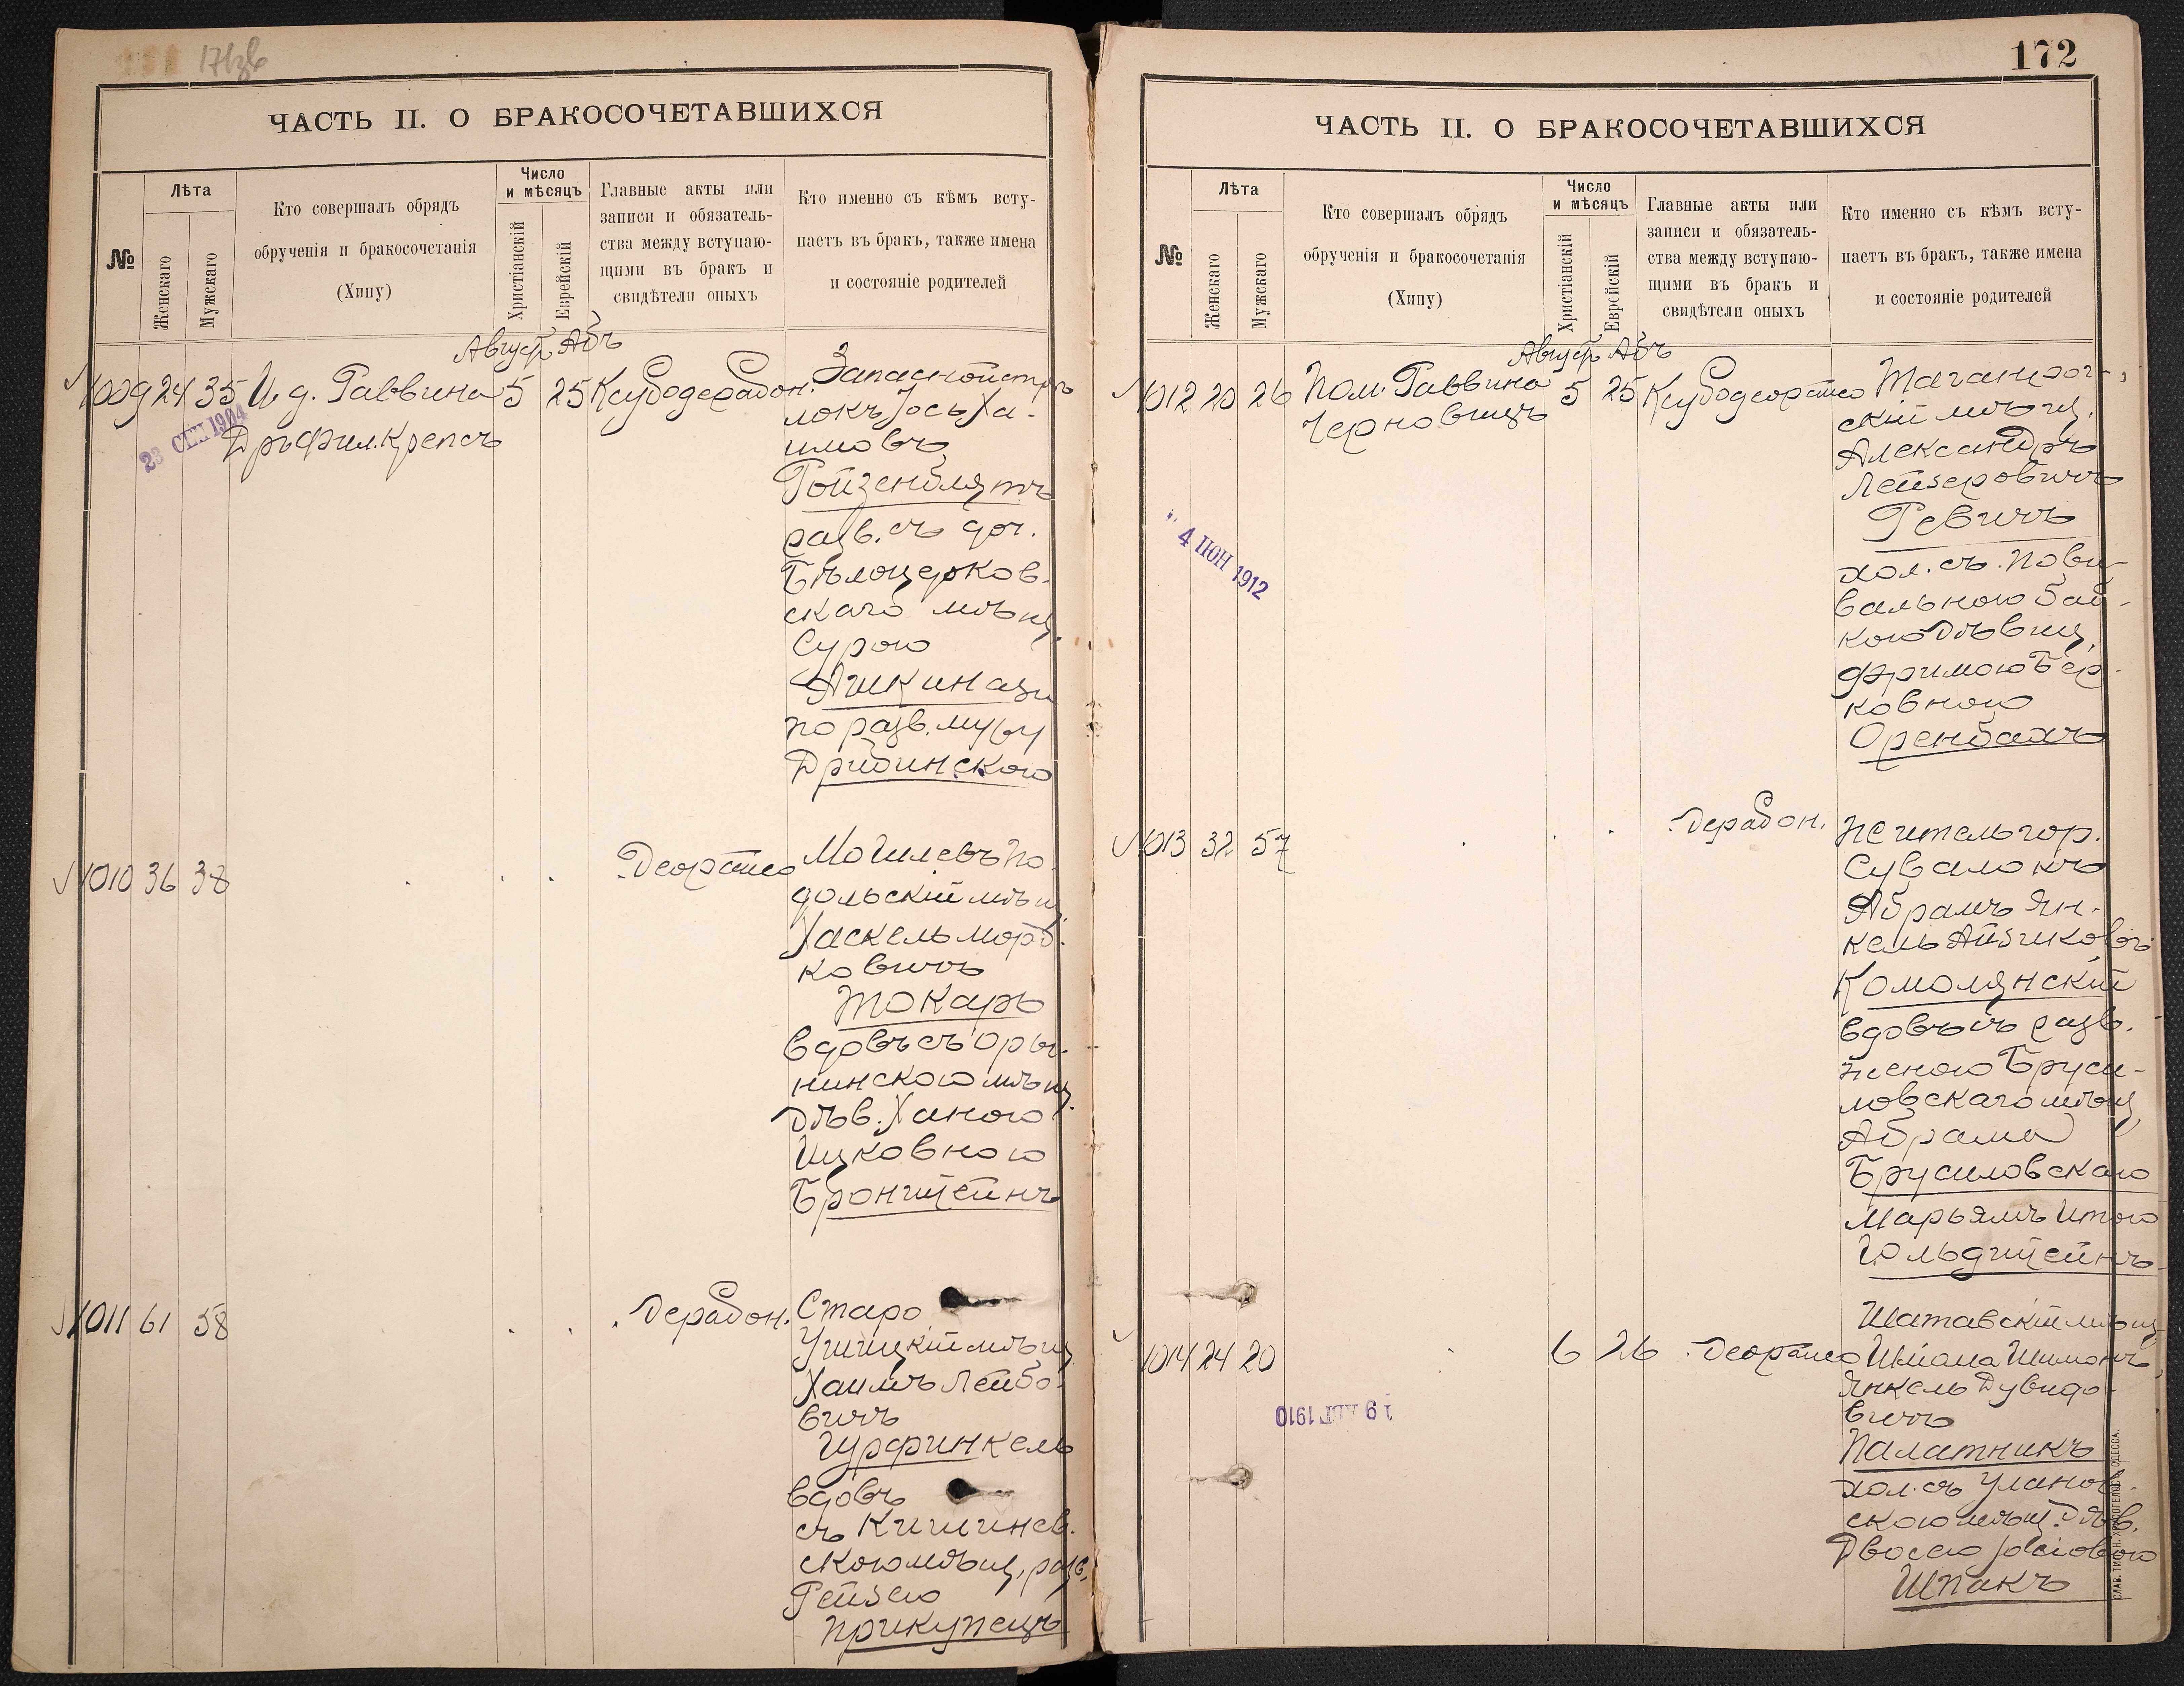 171об
ЧАСТЬ II. О БРАКОСОЧЕТАВШИХСЯ
№
Лѣта
Женскаго
Мужскаго
Кто совершалъ обрядъ
обрученія и бракосочетанія
(Хипу)
Число
и мѣсяцъ
Христіанскій
Еврейскій
Главные акты или
записи и обязатель-
ства между вступаю-
щими въ бракъ и
свидѣтели оныхъ
Кто именно съ кѣмъ всту-
паетъ въ бракъ, также имена
и состояніе родителей
Август. Абъ
1009 24 35 И. д. Раввина 5 25 Ксубодерабон. Запасной стрѣ
Дръ Фил. Крепсъ
23 СЕН 1904
локъ Іось Ха-
имовъ
Ройзенблятъ
разв. съ доч.
Бѣлоцерков-
скаго мѣщ.
Сурою
Ашкинази
по разв. мужу
Дрибинскою
1010 36 38 Деорайсо Могилевъ По-
дольскій мѣщ.
Хаскель Морд-
ковичъ
Токарь
вдовъ съ Оры-
нинскою мѣщ.
дѣв. Ханою
Ицковною
Бронштейнъ
1011 61 58 Дерабон. Старо
Ушицкій мѣщ.
Хаимъ Лейбо-
вичъ
Гурфинкель
вдовъ
съ Кишинев-
скою мѣщ. разв.
Рейзею
Прикупецъ
172
ЧАСТЬ II. О БРАКОСОЧЕТАВШИХСЯ
№
Лѣта
Женскаго
Мужскаго
Кто совершалъ обрядъ
обрученія и бракосочетанія
(Хипу)
Число
и мѣсяцъ
Христіанскій
Еврейскій
Главные акты или
записи и обязатель-
ства между вступаю-
щими въ бракъ и
свидѣтели оныхъ
Кто именно съ кѣмъ всту-
паетъ въ бракъ, также имена
и состояніе родителей
Август. Абъ
1012 20 26 Пом. Раввина 5 25 Ксубодеорайсо Таганрог-
Черновицъ
4 ІЮН 1912
скій мѣщ.
Александръ
Лейзеровичъ
Ревичъ
хол. съ Пови-
вальною баб-
кою дѣвиц.
Фримою Бер-
ковною
Оренбахъ
1013 32 57 Дерабон. Житель гор.
Сувалокъ
Абрамъ Ян-
кель Айзиковъ
Комолянскій
вдовъ съ разв.
женою Бруси-
ловскаго мѣщ.
Абрама
Брусиловскаго
Марьямъ Итою
Гольдштейнъ
1014 24 20 6 26 Деорайсо Шатавскій мѣщ.
19 АВГ 1910
Шимонъ
Янкель Дувидо-
вичъ
Палатникъ
хол. съ Уланов-
скою мѣщ. дѣв.
Двосею
Шпакъ